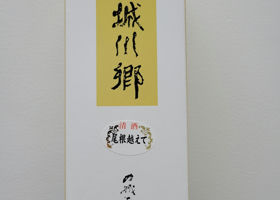 城川郷
清酒
尾根越えて